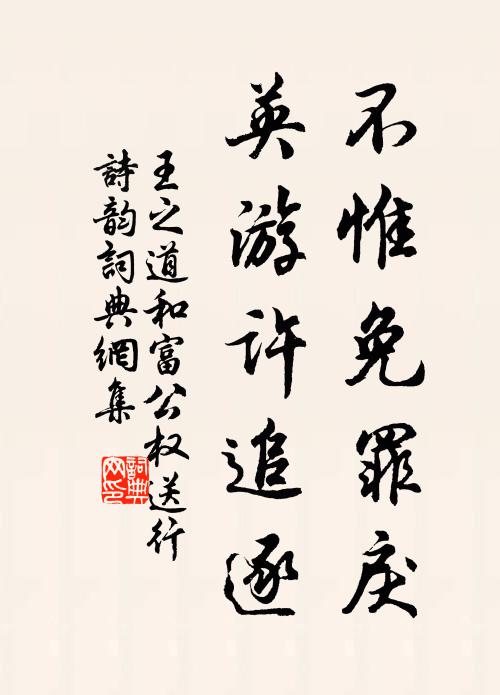 不惟免罪戾
英游许追逐
王之道和富公权送行
詩韵詞典網集
詞典网印